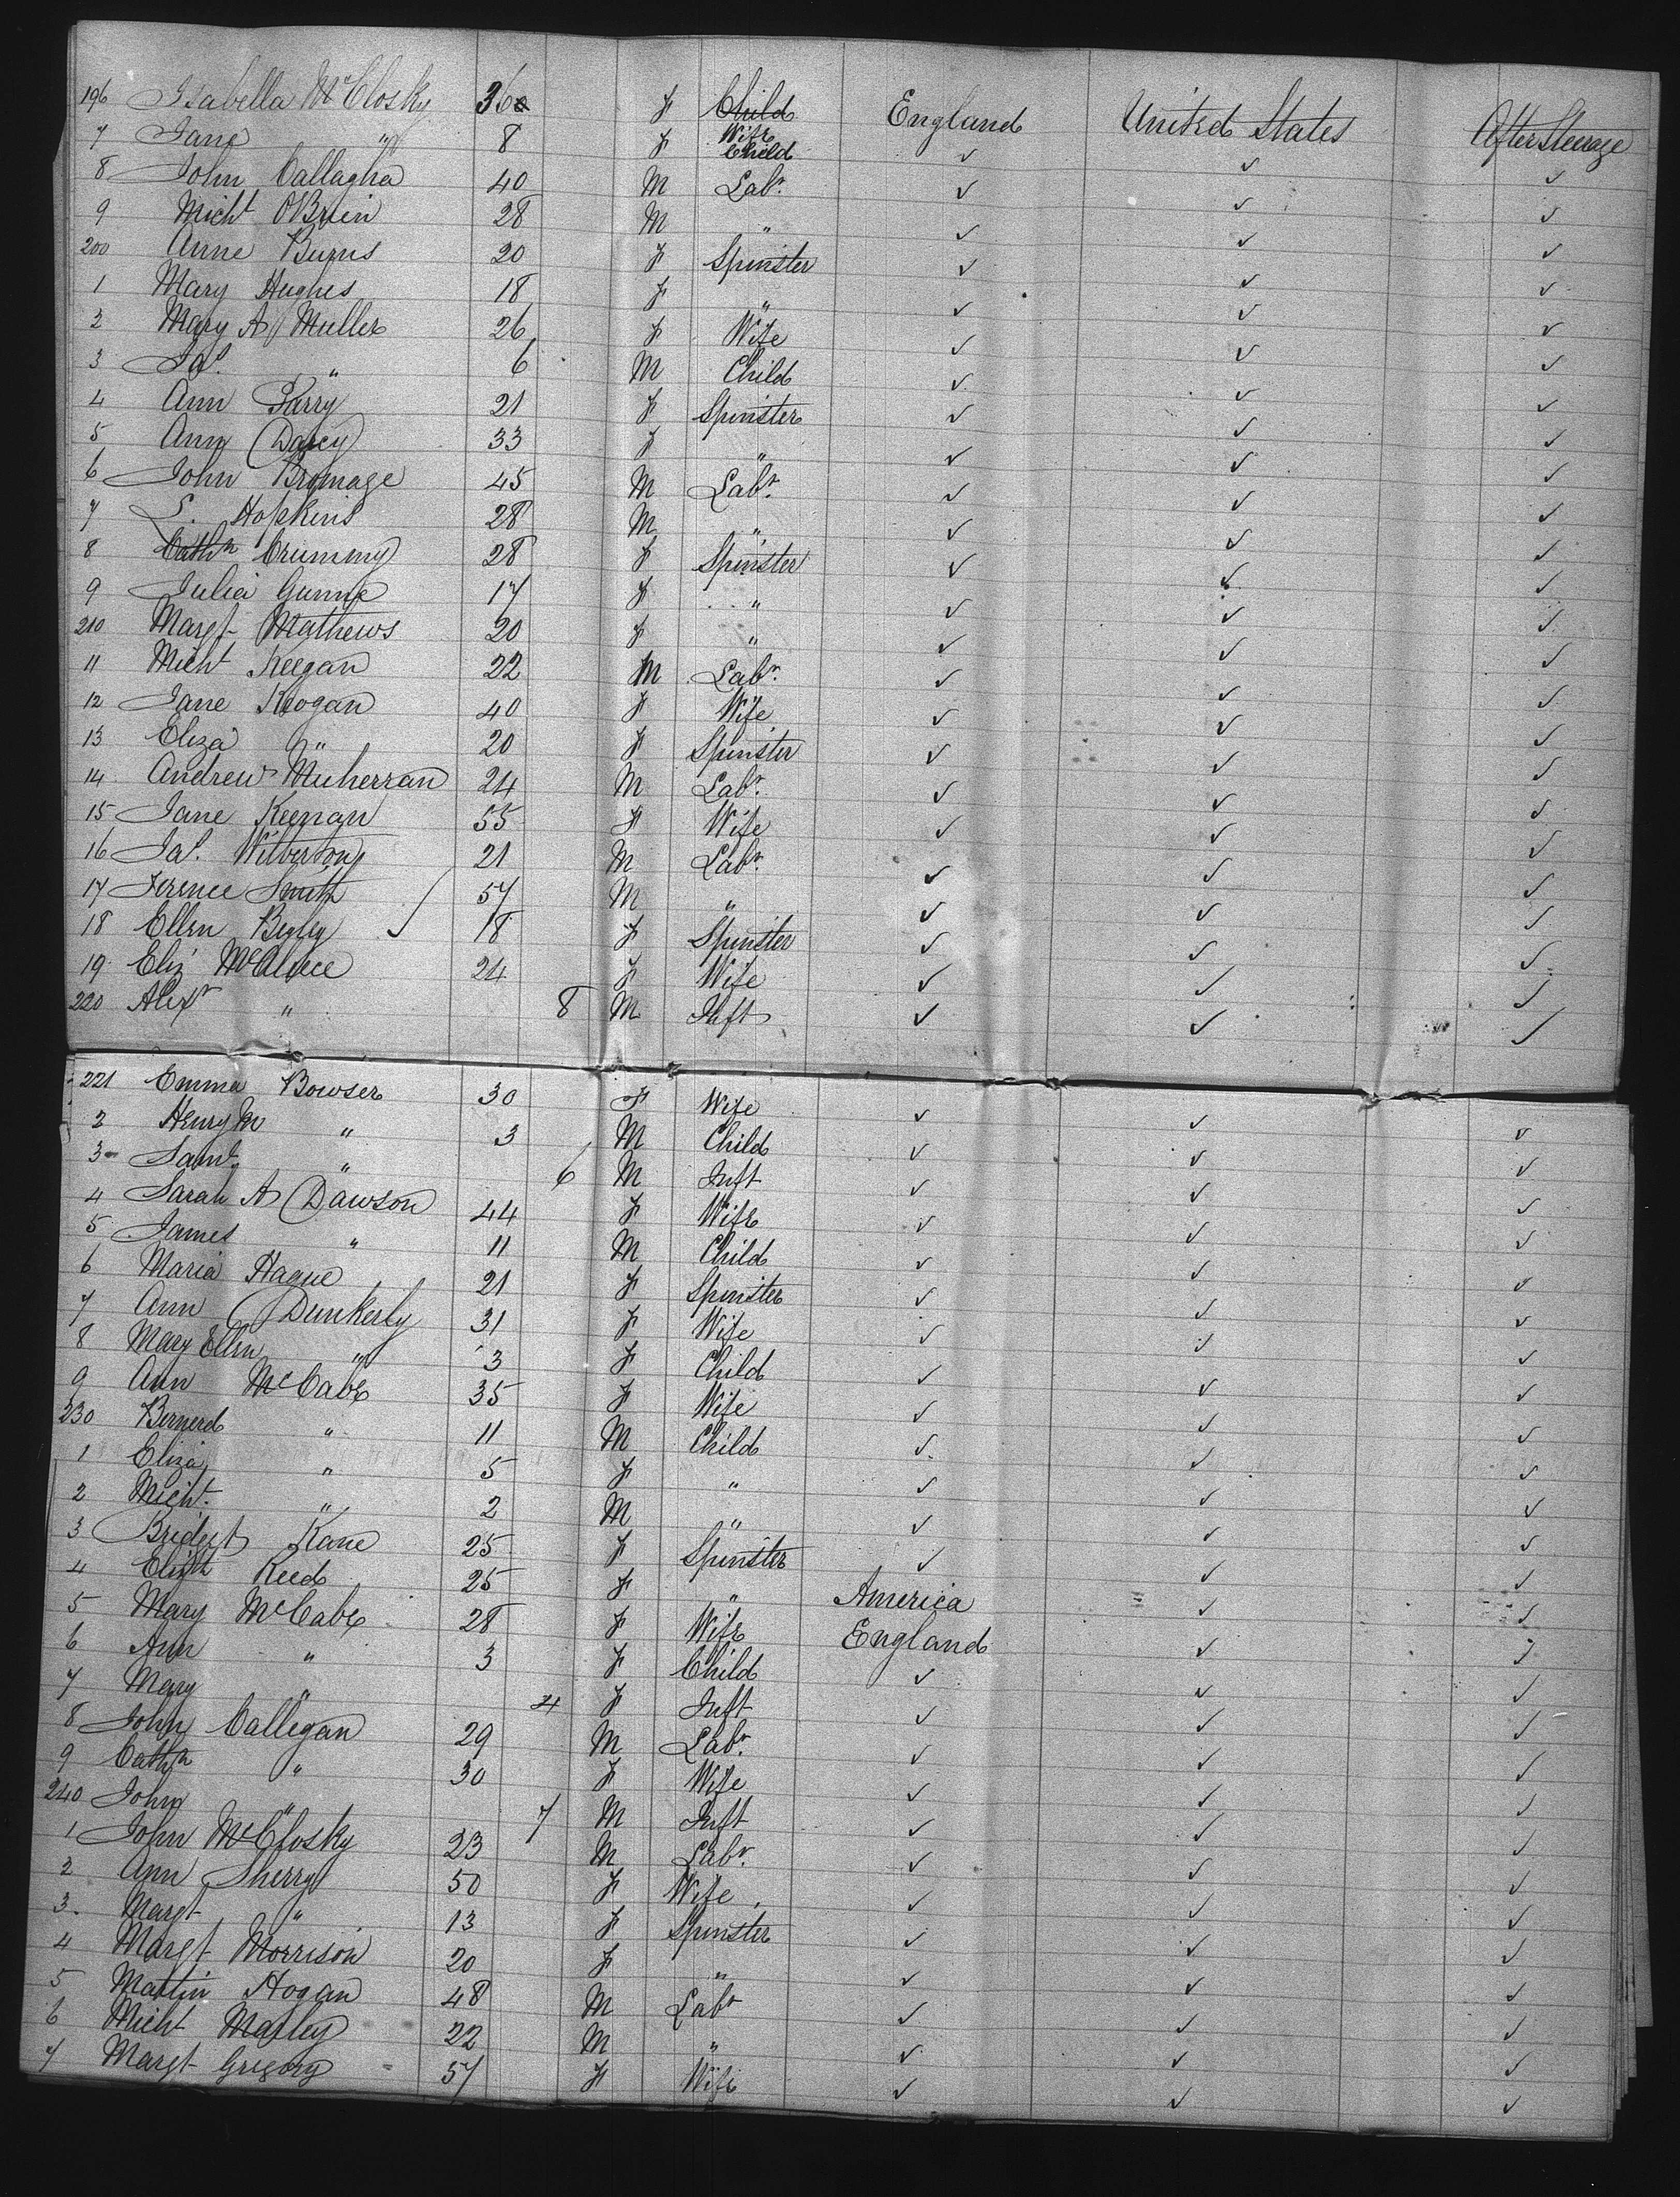 196 Isabella McClosky 36 F Child England United States After Steerage
7 Jane " 8 F Wife Child ✓ ✓ ✓
8 John Callagha 40 M Labr. ✓ ✓ ✓
9 Michl O'Brien 28 M " ✓ ✓ ✓
200 Anne Burns 20 F Spinster ✓ ✓ ✓
1 Mary Hughes 18 F " ✓ ✓ ✓
2 Mary A Muller 26 F Wife ✓ ✓ ✓
3 Jas. " 6 M Child ✓ ✓ ✓
4 Ann Parry 21 F Spinster ✓ ✓ ✓
5 Ann Darcy 33 F " ✓ ✓ ✓
6 John Bromage 45 M Labr. ✓ ✓ ✓
7 S. Hopkins 28 M " ✓ ✓ ✓
8 Cathn Crummy 28 F Spinster ✓ ✓ ✓
9 Julia Gunne 17 F " ✓ ✓ ✓
210 Margt Mathews 20 F " ✓ ✓ ✓
11 Michl Keegan 22 M Labr. ✓ ✓ ✓
12 Jane Keogan 40 F Wife ✓ ✓ ✓
13 Eliza " 20 F Spinster ✓ ✓ ✓
14 Andrew Muherran 24 M Labr. ✓ ✓ ✓
15 Jane Keenan 55 F Wife ✓ ✓ ✓
16 Jas. Wilberton 21 M Labr. ✓ ✓ ✓
17 Terence Smith 57 M " ✓ ✓ ✓
18 Ellen Begley ✓ 18 F Spinster ✓ ✓ ✓
19 Eliz McAleee 24 F Wife ✓ ✓ ✓
220 Alexr " 8 M Inft ✓ ✓ ✓
221 Emma Bowser 30 F Wife ✓ ✓ ✓
2 Henry M " 3 M Child ✓ ✓ ✓
3 Saml. " 6 M Inft ✓ ✓ ✓
4 Sarah A Dawson 44 F Wife ✓ ✓ ✓
5 James " 11 M Child ✓ ✓ ✓
6 Maria Hague 21 F Spinster ✓ ✓ ✓
7 Ann Dunkerly 31 F Wife ✓ ✓ ✓
8 Mary Ellen " 3 F Child ✓ ✓ ✓
9 Ann McCabe 35 F Wife ✓ ✓ ✓
230 Bernerd " 11 M Child ✓ ✓ ✓
1 Eliza " 5 F " ✓ ✓ ✓
2 Michl. " 2 M " ✓ ✓ ✓
3 Bridget Kane 25 F Spinster ✓ ✓ ✓
4 Elizth Reed 25 F " America ✓ ✓
5 Mary McCabe 28 F Wife England ✓ ✓
6 Ann " 3 F Child ✓ ✓ ✓
7 Mary " 4 F Inft ✓ ✓ ✓
8 John Calligan 29 M Labr. ✓ ✓ ✓
9 Cathn " 30 F Wife ✓ ✓ ✓
240 John " 7 M Inft ✓ ✓ ✓
1 John McClosky 23 M Labr. ✓ ✓ ✓
2 Ann Sherry 50 F Wife ✓ ✓ ✓
3 Margt " 13 F Spinster ✓ ✓ ✓
4 Margt Morrison 20 F " ✓ ✓ ✓
5 Martin Hogan 48 M Labr ✓ ✓ ✓
6 Michl Marley 22 M " ✓ ✓ ✓
7 Margt Gregory 57 F Wife ✓ ✓ ✓